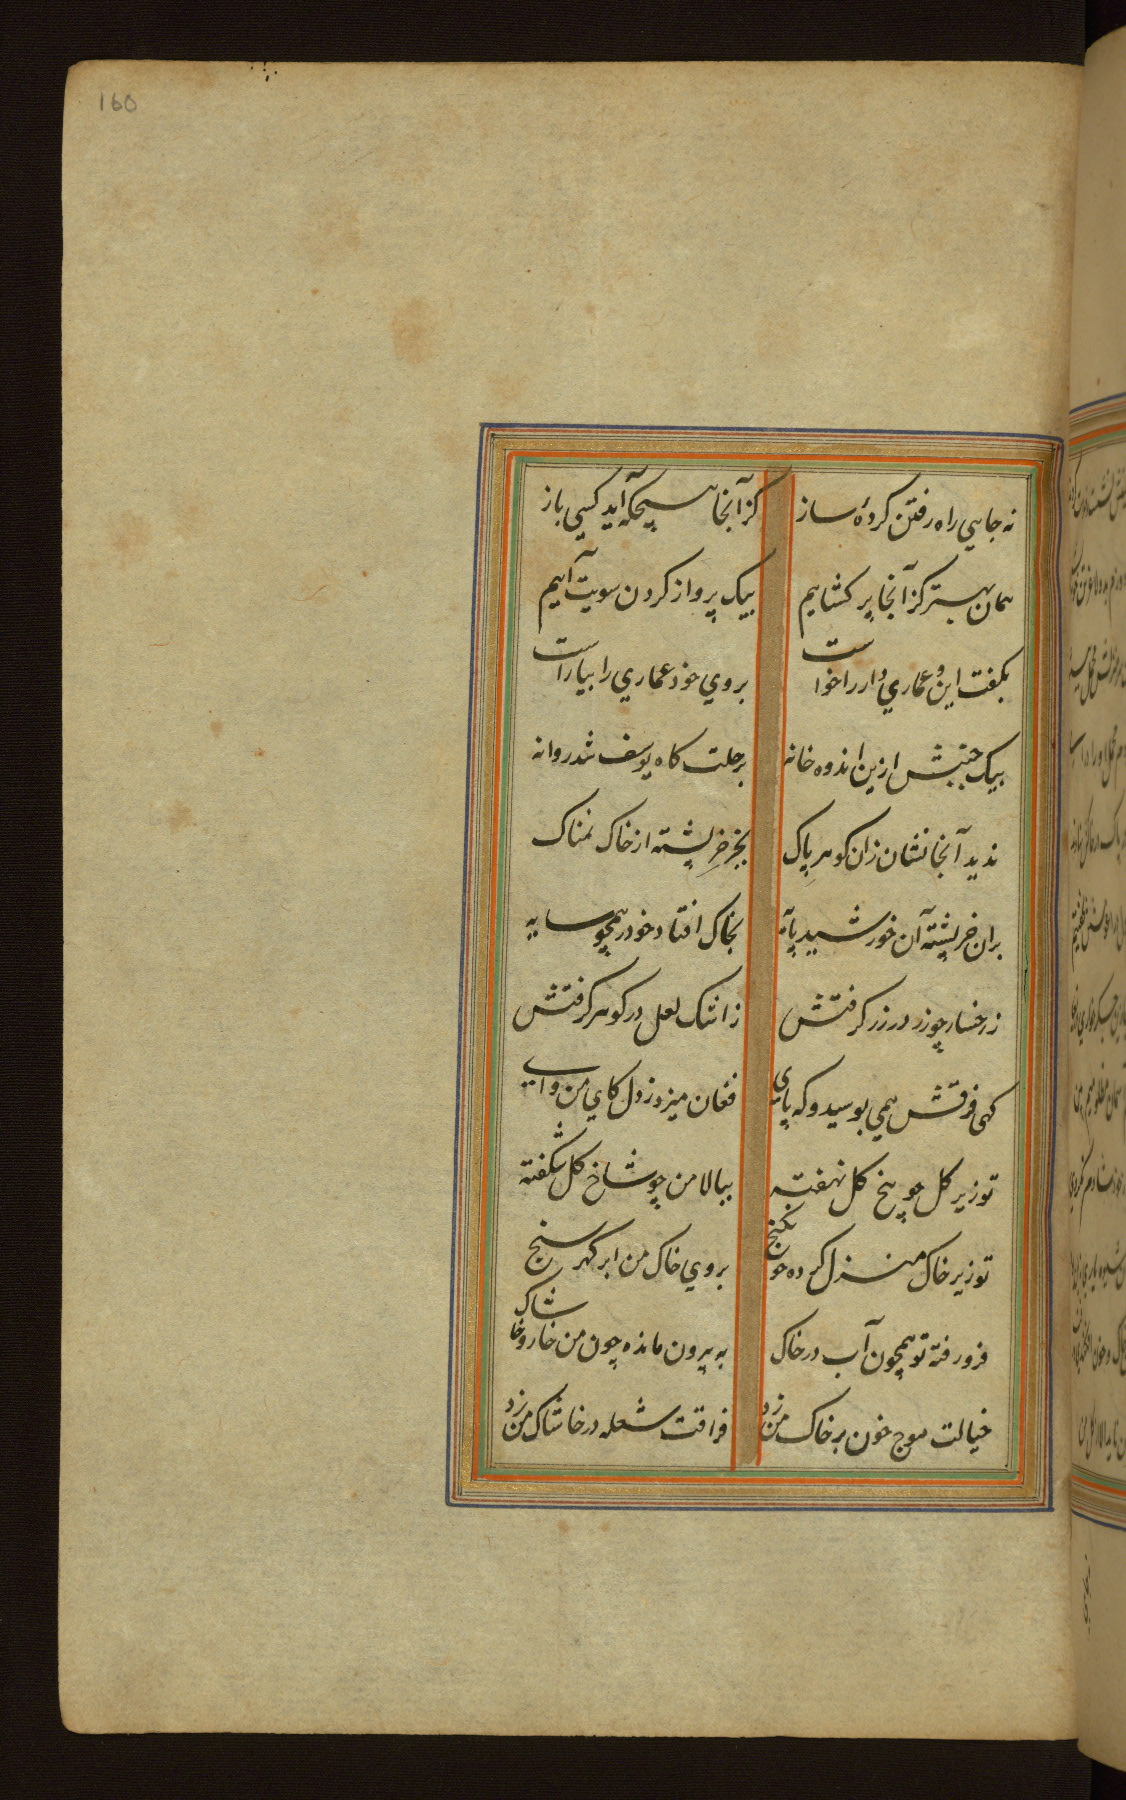 160
نه جایي راه رفتن کردهٔ ساز
کز آنجا هیچکه آید کسي باز
همان بهتر کز آنجا پر کشایم
بیک پرواز کردن سویت آیم
بکفت این و عماري دار را خواست
بروي خود عماري را بیاراست
بیک جنبش ازین اندوه خانه
برحلت کاه یوسف شد روانه
ندید آنجا نشان زان کوهر پاک
بجز خر پشته از خاک نمناک
بران خر پشته آن خورشید پایه
بخاک افتاد خود را همچو سایه
ز رخسار چو زر در زر کرفتش
ز اشک لعل در کوهر کرفتش
کهی فرقش همي بوسید و که پای
فغان میزد ز دل کاي من واي
تو زیر کل چو بیخ کل نهفته
ببالا من چو شاخ کل شکفته
تو زیر خاک منزل کرده چون کنج
بروي خاک من ابر کهر سنج
فرو رفته تو همچون آب در خاک
به بیرون مانده چون من خار و خاشاک
خیالت موج خون بر خاک من زد
فراقت شعله در خاشاک من زد